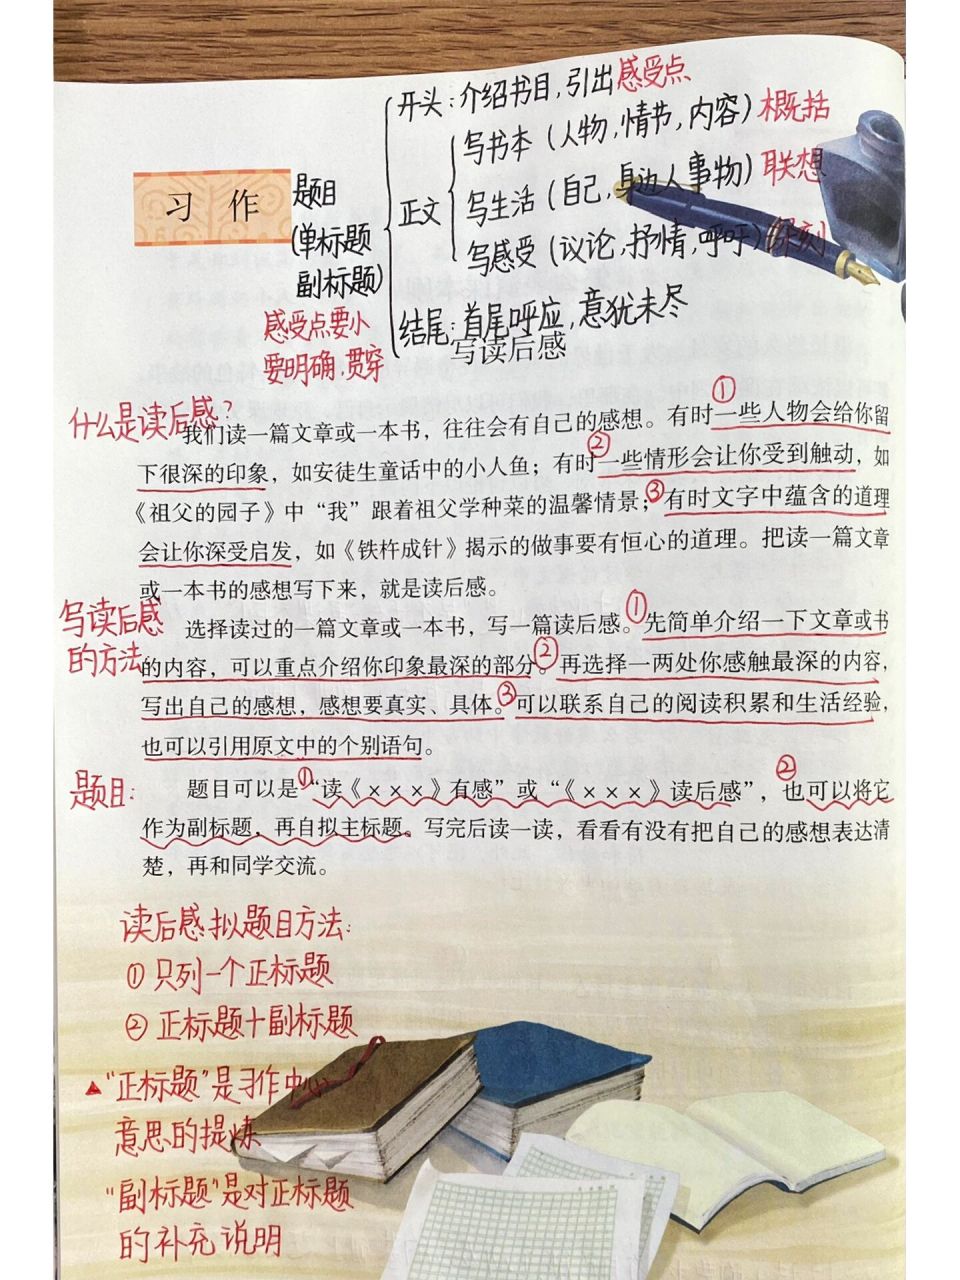 开头：介绍书目，引出感受点
写书本（人物，情节，内容）概括
习 作
题目
正文
写生活（自己，身边人事物）联想
(单标题
副标题)
写感受（议论，抒情，呼吁）深刻
感受点要小
要明确，贯穿
结尾：首尾呼应，意犹未尽
写读后感
什么是读后感？
我们读一篇文章或一本书，往往会有自己的感想。有时①一些人物会给你留
下很深的印象，如安徒生童话中的小人鱼；有时②一些情形会让你受到触动，如
《祖父的园子》中“我”跟着祖父学种菜的温馨情景；③有时文字中蕴含的道理
会让你深受启发，如《铁杵成针》揭示的做事要有恒心的道理。把读一篇文章
或一本书的感想写下来，就是读后感。
写读后感
的方法
选择读过的一篇文章或一本书，写一篇读后感。①先简单介绍一下文章或书
的内容，可以重点介绍你印象最深的部分。②再选择一两处你感触最深的内容，
写出自己的感想，感想要真实、具体。③可以联系自己的阅读积累和生活经验，
也可以引用原文中的个别语句。
题目：
题目可以是①“读《×××》有感”或“《×××》读后感”，也②可以将它
作为副标题，再自拟主标题。写完后读一读，看看有没有把自己的感想表达清
楚，再和同学交流。
读后感拟题目方法：
①只列一个正标题
②正标题+副标题
▲“正标题”是习作中心
意思的提炼
“副标题”是对正标题
的补充说明